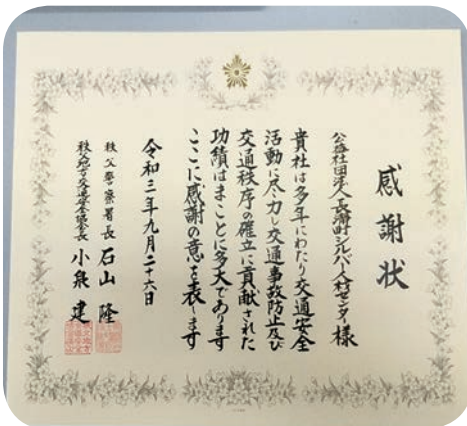 感謝状
公益社団法人長瀞町シルバー人材センター様
貴社は多年にわたり交通安全
活動に尽力し交通事故防止及び
交通秩序の確立に貢献された
功績はまことに多大であります
ここに感謝の意を表します
令和三年九月二十六日
秩父警察署長 石山 隆
秩父地方交通安全協会長 小泉 建